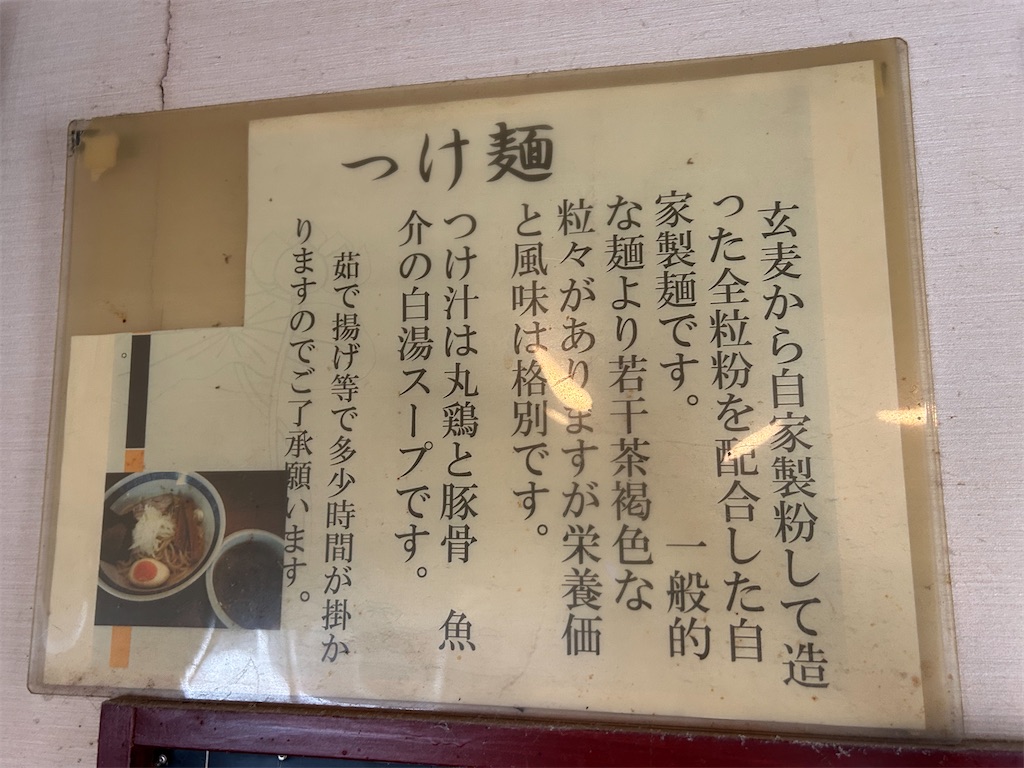 つけ麺
玄麦から自家製粉して造
った全粒粉を配合した自
家製麺です。　一般的
な麺より若干茶褐色な
粒々がありますが栄養価
と風味は格別です。
つけ汁は丸鶏と豚骨　魚
介の白湯スープです。
茹で揚げ等で多少時間が掛か
りますのでご了承願います。